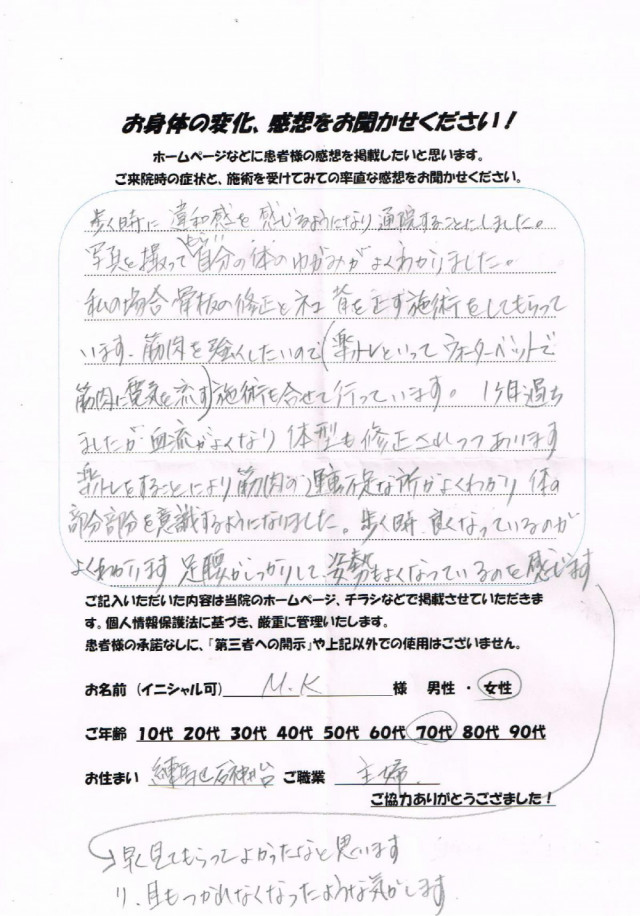 お身体の変化、感想をお聞かせください！
ホームページなどに患者様の感想を掲載したいと思います。
ご来院時の症状と、施術を受けてみての率直な感想をお聞かせください。
歩く時に違和感を感じるようになり通院することにしました。
写真を撮って自分の体のゆがみがよくわかりました。
私の場合骨板の修正とネコ背を正す施術をしてもらって
います。筋肉を強くしたいので(楽トレといってウォーターベットで
筋肉に電気を流す)施術も合せて行っています。1ヶ月過ち
ましたが血流がよくなり体型も修正されつつあります
楽トレをすることにより筋肉の運動不足な所がよくわかり体の
部分部分を意識するようになりました。歩く時、良くなっているのが
よくわかります足腰がしっかりして、姿勢もよくなっているのを感じます
ご記入いただいた内容は当院のホームページ、チラシなどで掲載させていただきま
す。個人情報保護法に基づき、厳重に管理いたします。
患者様の承諾なしに、「第三者への開示」や上記以外での使用はございません。
お名前（イニシャル可） M.K 様 男性 ・ 女性
ご年齢 10代 20代 30代 40代 50代 60代 70代 80代 90代
お住まい 練馬区石神井台 ご職業 主婦
ご協力ありがとうござました！
早く見てもらってよかったなと思います
目もつかれなくなったような気がします